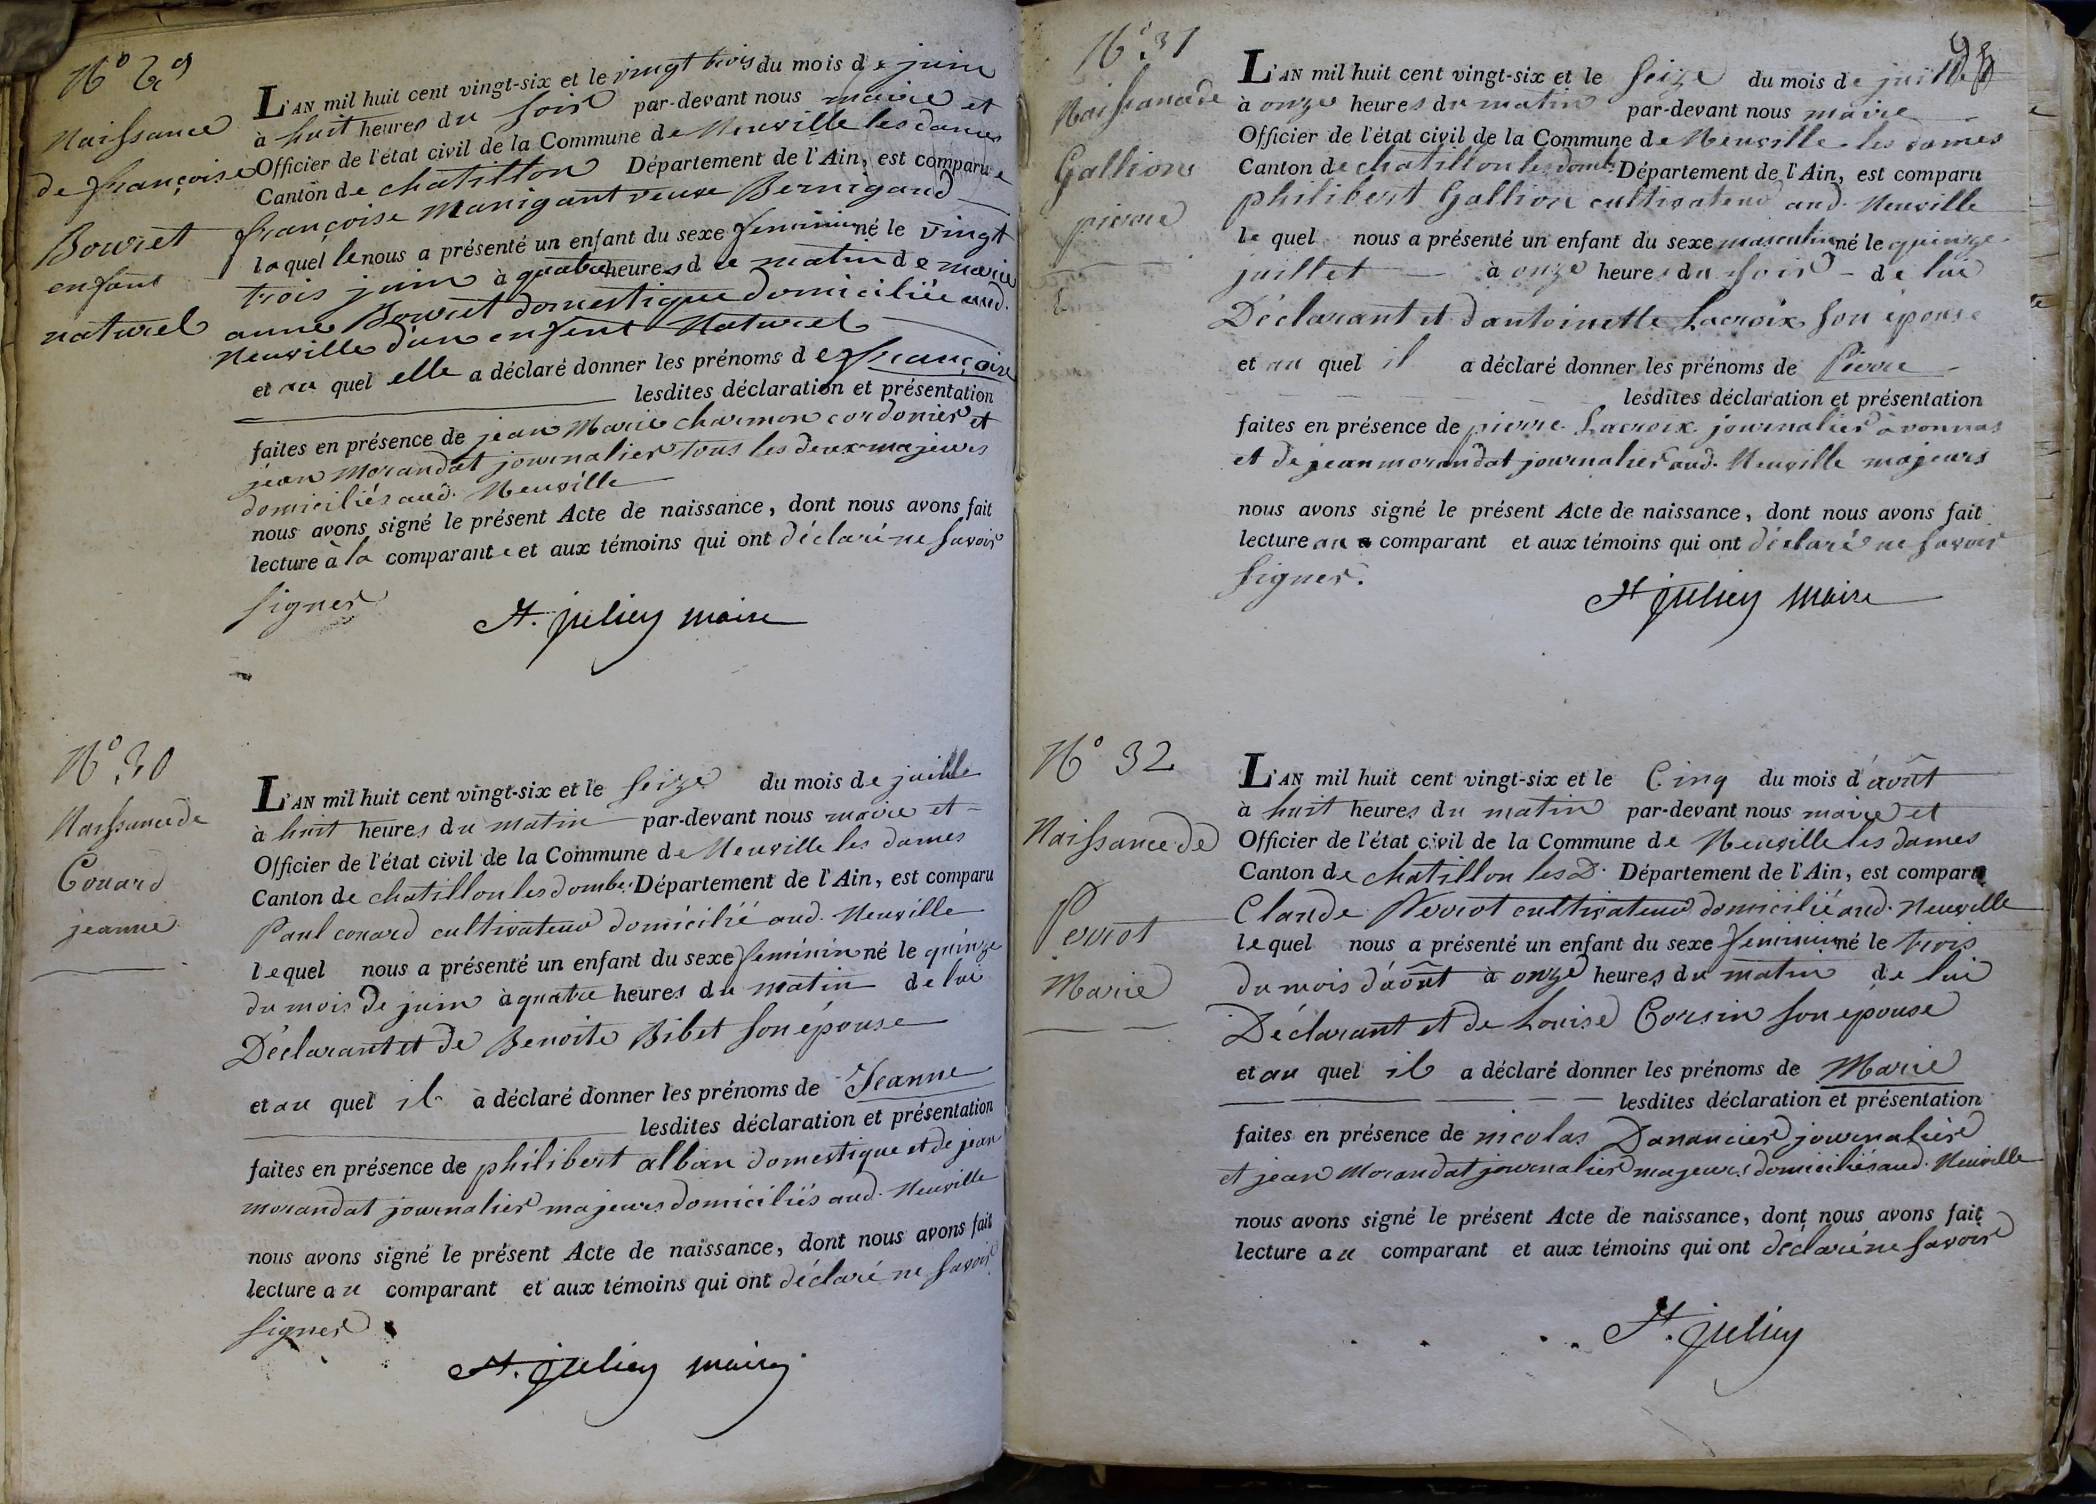 N° 29
Naissance
de françoise
Bouret
enfant
naturel
L'AN mil huit cent vingt-six et le vingt trois du mois de juin
à huit heures du soir par-devant nous maire et
Officier de l'état civil de la Commune de Neuville les dames
Canton de chatillon Département de l'Ain, est comparue
françoise Manigant veuve Bernigaud
laquelle nous a présenté un enfant du sexe feminin né le vingt
trois juin à quatre heures de matin de marie
anne Bouret domestique domiciliée aud.
Neuville d'un enfent Naturel
et au quel elle a déclaré donner les prénoms de françoise
lesdites déclaration et présentation
faites en présence de jean Marie charmon cordonier et
jean Morandat journalier tous les deux majeurs
domiciliés aud. Neuville
nous avons signé le présent Acte de naissance, dont nous avons fait
lecture à la comparante et aux témoins qui ont déclaré ne savoir
signer
St. julien maire
N° 30
Naissance de
Couard
jeanne
L'AN mil huit cent vingt-six et le seize du mois de juille
à huit heures du matin par-devant nous maire et
Officier de l'état civil de la Commune de Neuville les dames
Canton de chatillon les dombe. Département de l'Ain, est comparu
Paul conard cultivateur domicilié aud. Neuville
lequel nous a présenté un enfant du sexe feminin né le quinze
du mois de juin à quatre heures du matin de lui
Déclarant et de Benoite Bibet son épouse
et au quel il a déclaré donner les prénoms de Jeanne
lesdites déclaration et présentation
faites en présence de philibert alban domestique et de jean
morandat journalier majeurs domiciliés aud. Neuville
nous avons signé le présent Acte de naissance, dont nous avons fait
lecture au comparant et aux témoins qui ont déclaré ne savoir
signer
St. julien maire
N° 31
Naissance de
Gallion
pierre
L'AN mil huit cent vingt-six et le seize du mois de juillet
à onze heures du matin par-devant nous maire
Officier de l'état civil de la Commune de Neuville les dames
Canton de chatillon les domb. Département de l'Ain, est comparu
philibert Gallion cultivateur aud. Neuville
le quel nous a présenté un enfant du sexe masculin né le quinze
juillet à onze heures du soir de lui
Déclarant et d'antoinette Lacroix son épouse
et au quel il a déclaré donner les prénoms de Pierre
lesdites déclaration et présentation
faites en présence de pierre Lacroix journalier à vonnas
et de jean morandat journalier aud. Neuville majeurs
nous avons signé le présent Acte de naissance, dont nous avons fait
lecture au comparant et aux témoins qui ont déclaré ne savoir
signer.
St julien maire
N° 32
Naissance de
Perrot
Marie
L'AN mil huit cent vingt-six et le Cinq du mois d'août
à huit heures du matin par-devant nous maire et
Officier de l'état civil de la Commune de Neuville les dames
Canton de chatillon les D. Département de l'Ain, est comparu
Claude Perrot cultivateur domicilié aud. Neuville
lequel nous a présenté un enfant du sexe feminin né le trois
du mois d'août à onze heures du matin de lui
Déclarant et de Louise Corsin son épouse
et au quel il a déclaré donner les prénoms de Marie
lesdites déclaration et présentation
faites en présence de nicolas Danancier journalier
et jean Morandat journalier majeurs domiciliés aud. Neuville
nous avons signé le présent Acte de naissance, dont nous avons fait
lecture au comparant et aux témoins qui ont déclaré ne savoir
St. julien